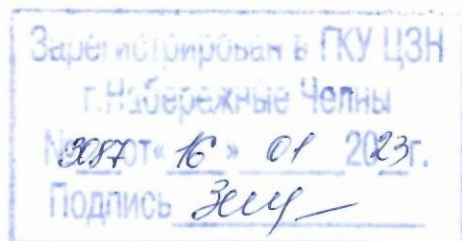 Зарегистрирован в ГКУ ЦЗН
г.Набережные Челны
№9087 от « 16 » 01 2023г.
Подпись